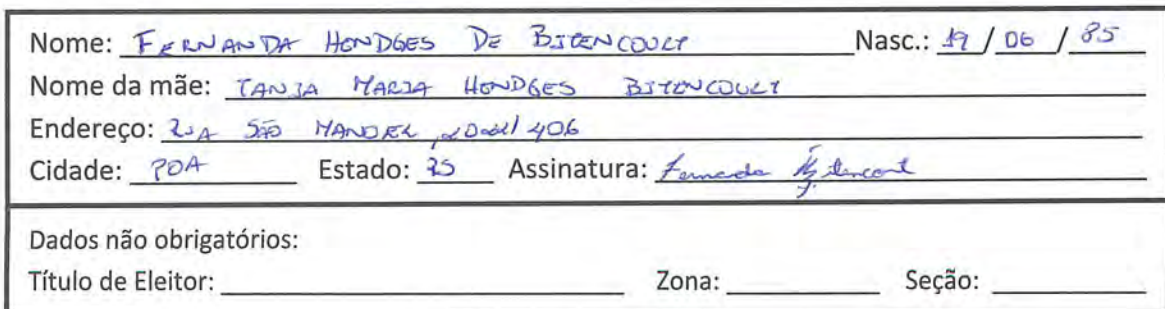 Nome: FERNANDA HENDGES DE BITENCOURT Nasc.: 19 / 06 / 85
Nome da mãe: TANIA MARIA HENDGES BITENCOURT
Endereço: RUA SÃO MANOEL, 406
Cidade: POA Estado: RS Assinatura: Fernanda Bitencourt
Dados não obrigatórios:
Título de Eleitor: Zona: Seção: